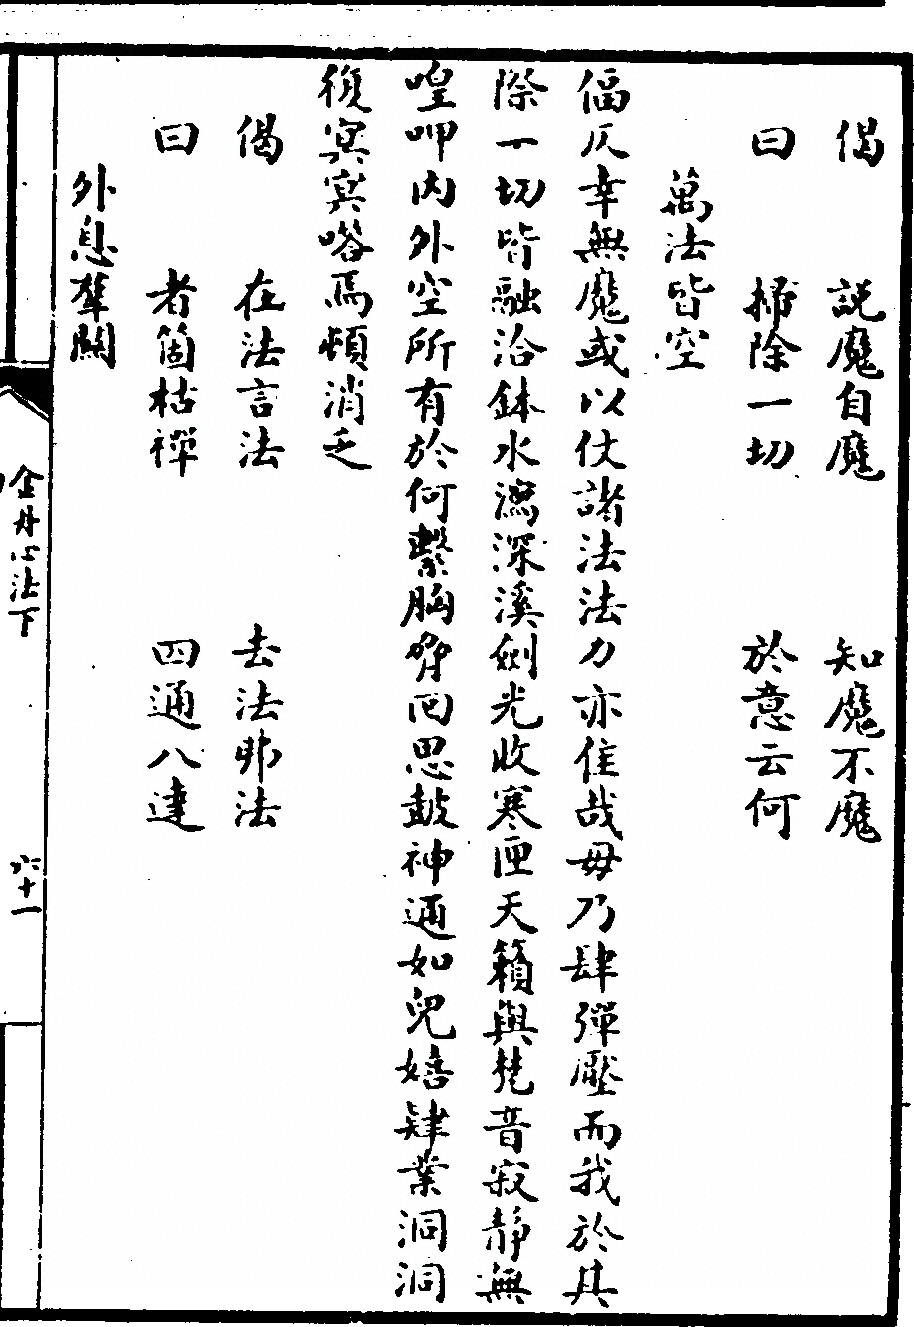 偈　説魔自魔　知魔不魔
曰　掃除一切　於意云何
萬法皆空
偪仄幸無魔或以仗諸法法力亦住哉毋乃肆彈壓而我於其
際一切皆融洽鉢水瀉深溪劍光收寒匣天籟與梵音寂靜無
喤呷内外空所有於何繫胸脅回思鼓神通如兒嬉肄業洞洞
復冥冥嗒焉頓消乏
偈　在法言法　去法非法
曰　者箇枯禪　四通八達
外息羣關
金丹心法下
六十一